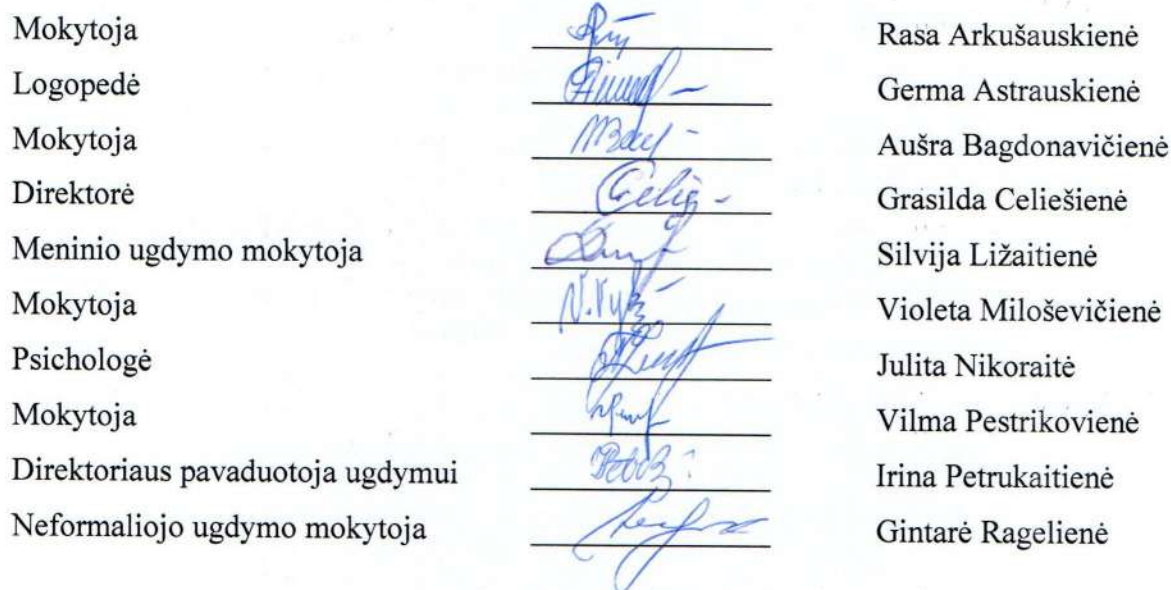 Mokytoja Rasa Arkušauskienė
Logopedė Germa Astrauskienė
Mokytoja Aušra Bagdonavičienė
Direktorė Grasilda Celiešienė
Meninio ugdymo mokytoja Silvija Ližaitienė
Mokytoja Violeta Miloševičienė
Psichologė Julita Nikoraitė
Mokytoja Vilma Pestrikovienė
Direktoriaus pavaduotoja ugdymui Irina Petrukaitienė
Neformaliojo ugdymo mokytoja Gintarė Ragelienė